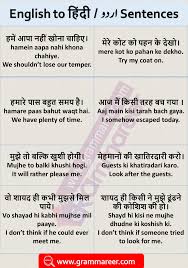 English to हिंदी / اردو Sentences
हमें आपा नहीं खोना चाहिए।
hamein aapa nahi khona
chahiye.
We shouldn't lose our temper.
मेरे कोट को पहन के देखो।
mere kot ko pahan ke dekho.
Try my coat on.
हमारे पास बहुत समय है।
hamare paas bahut waqt hai.
We have plenty of time.
आज मैं किसी तरह बच गया ।
Aaj main kisi tarah bach gaya.
I somehow escaped today.
मुझे तो बल्कि खुशी होगी।
mujhe to balki khushi hogi.
It will rather please me.
मेहमानों की खातिरदारी करो।
Guests ki khatiradari karo.
Look after the guests.
वो शायद ही कभी मुझसे मिल
पाये।
Vo shayad hi kabhi mujhse mil
paye.
I don't think if he could ever
meet me.
शायद ही किसी ने मुझे ढूंढने
की कोशिश की हो।
Shayd hi kisi ne mujhe
dhudne ki koshish ki.
I don't think if someone tried
to look for me.
Grammareer
www.grammareer.com